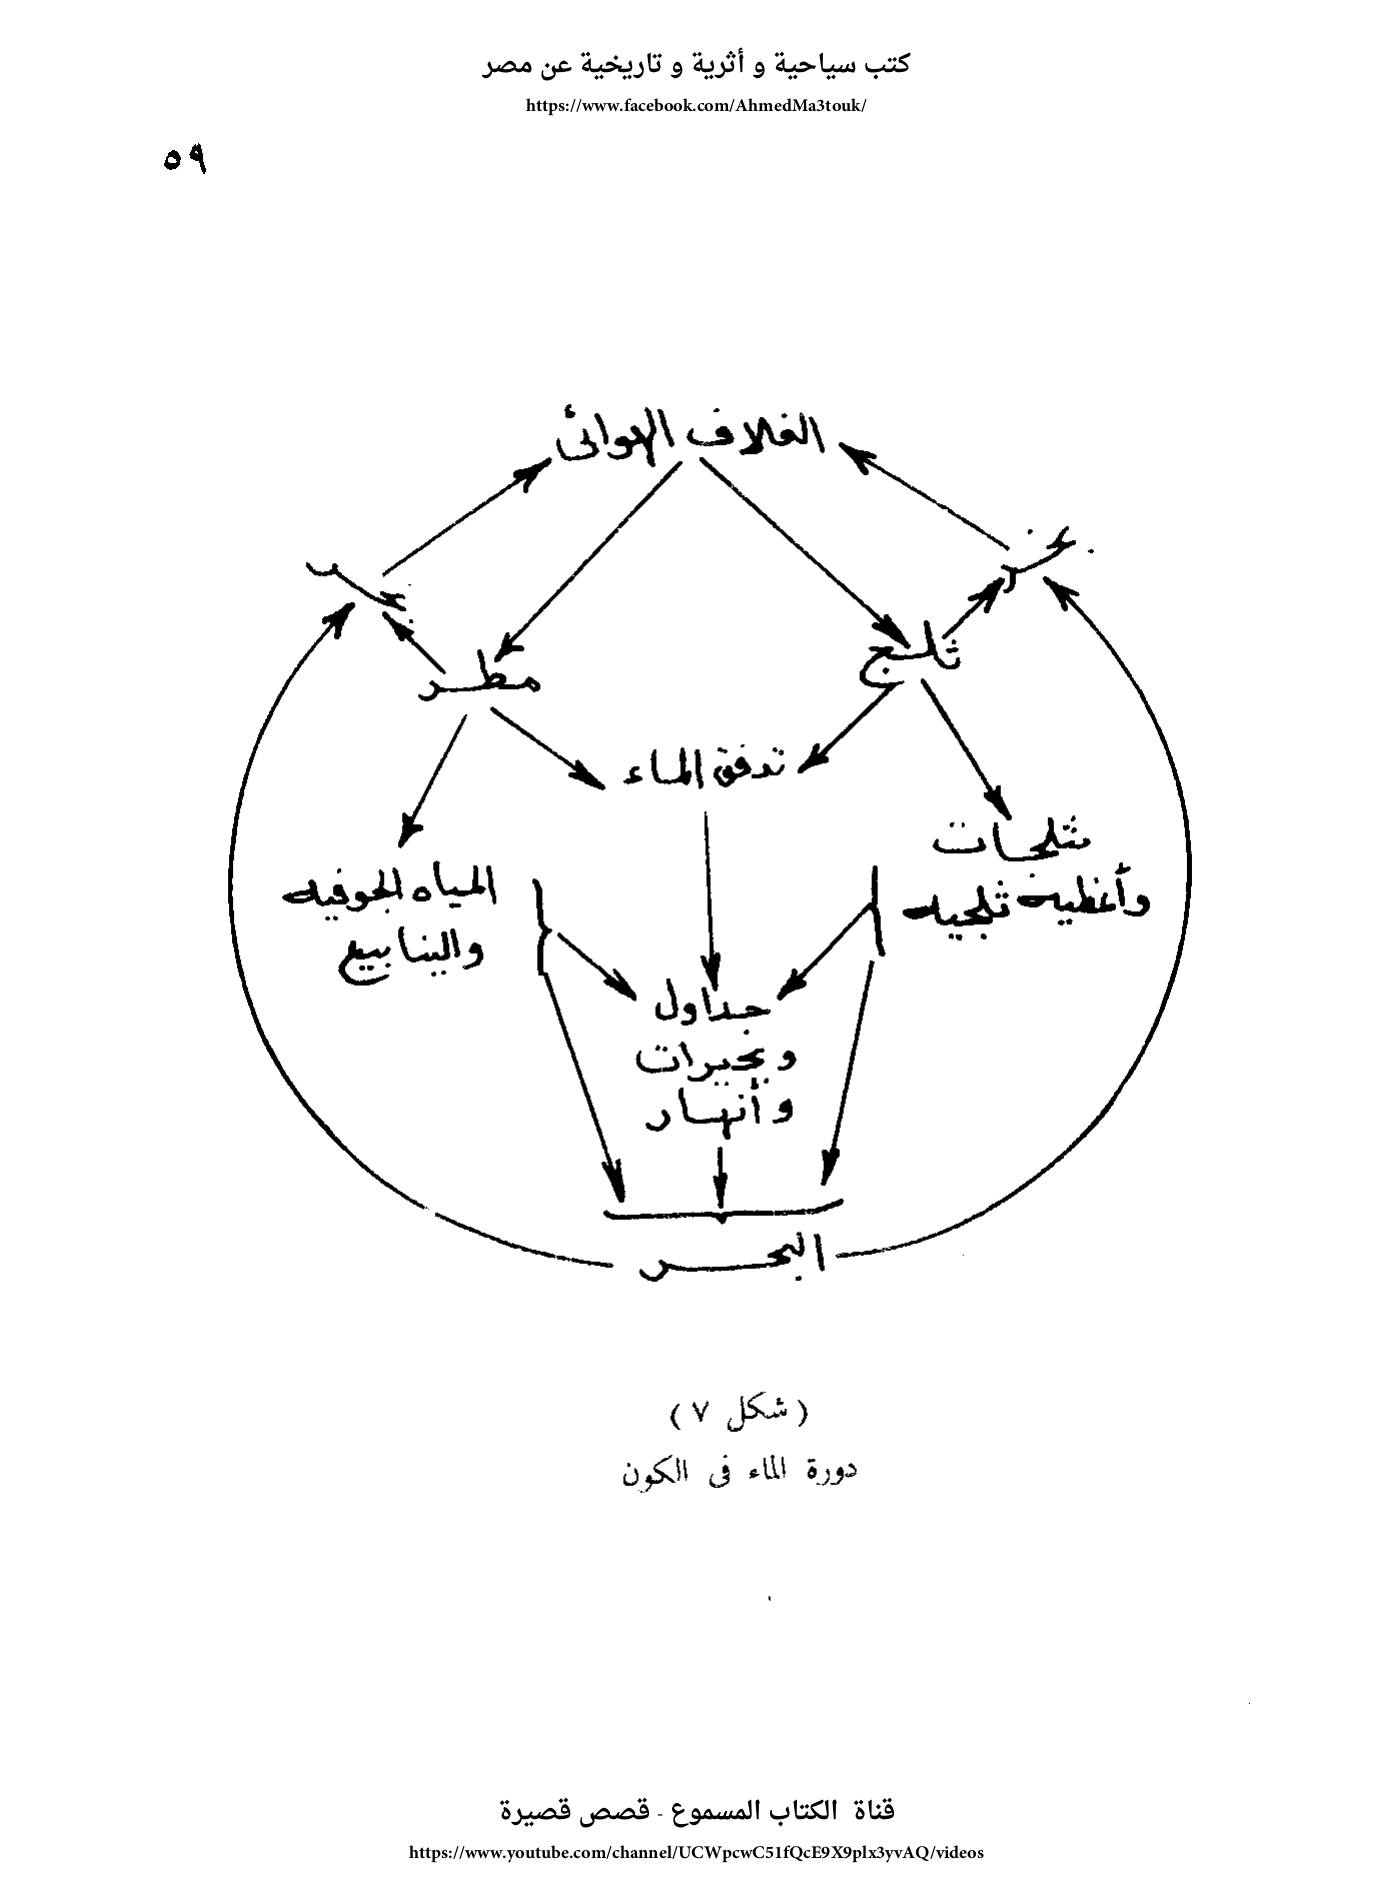 كتب سياحية و أثرية و تاريخية عن مصر
https://www.facebook.com/AhmedMa3touk/
٥٩
الغلاف الهوائى
ثلج
مطر
تدفق الماء
مثلجات
وأغطيه ثلجيه
المياه الجوفيه
والينابيع
جداول
وبحيرات
وأنهار
البحر
(شكل ٧)
دورة الماء فى الكون
قناة الكتاب المسموع - قصص قصيرة
https://www.youtube.com/channel/UCWpcwC51fQcE9X9plx3yvAQ/videos